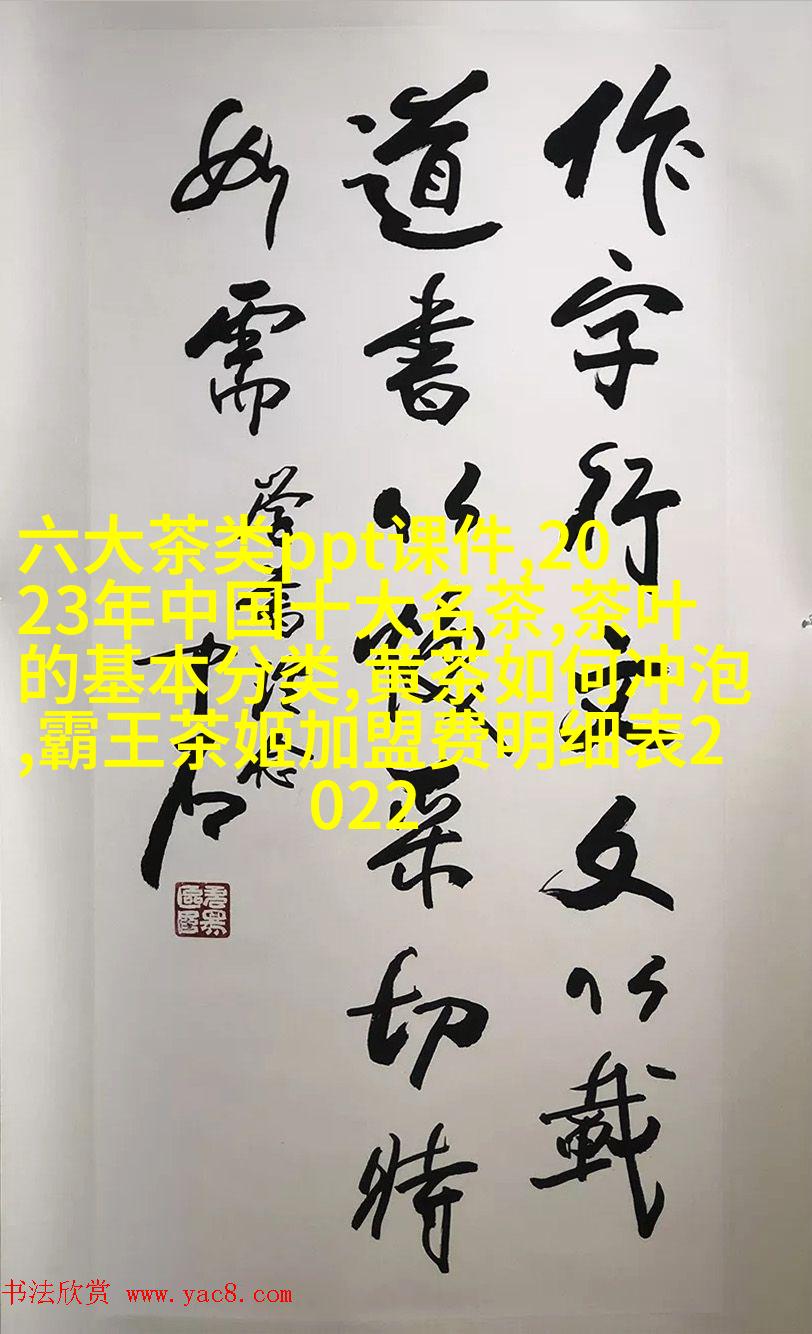 作字行文文以載
道書以煥采切時
如需
中石
六大茶类ppt课件,20
23年中国十大名茶,茶叶
的基本分类,黄茶如何冲泡
,霸王茶姬加盟费明细表2
022
书法欣赏 www.yac8.com